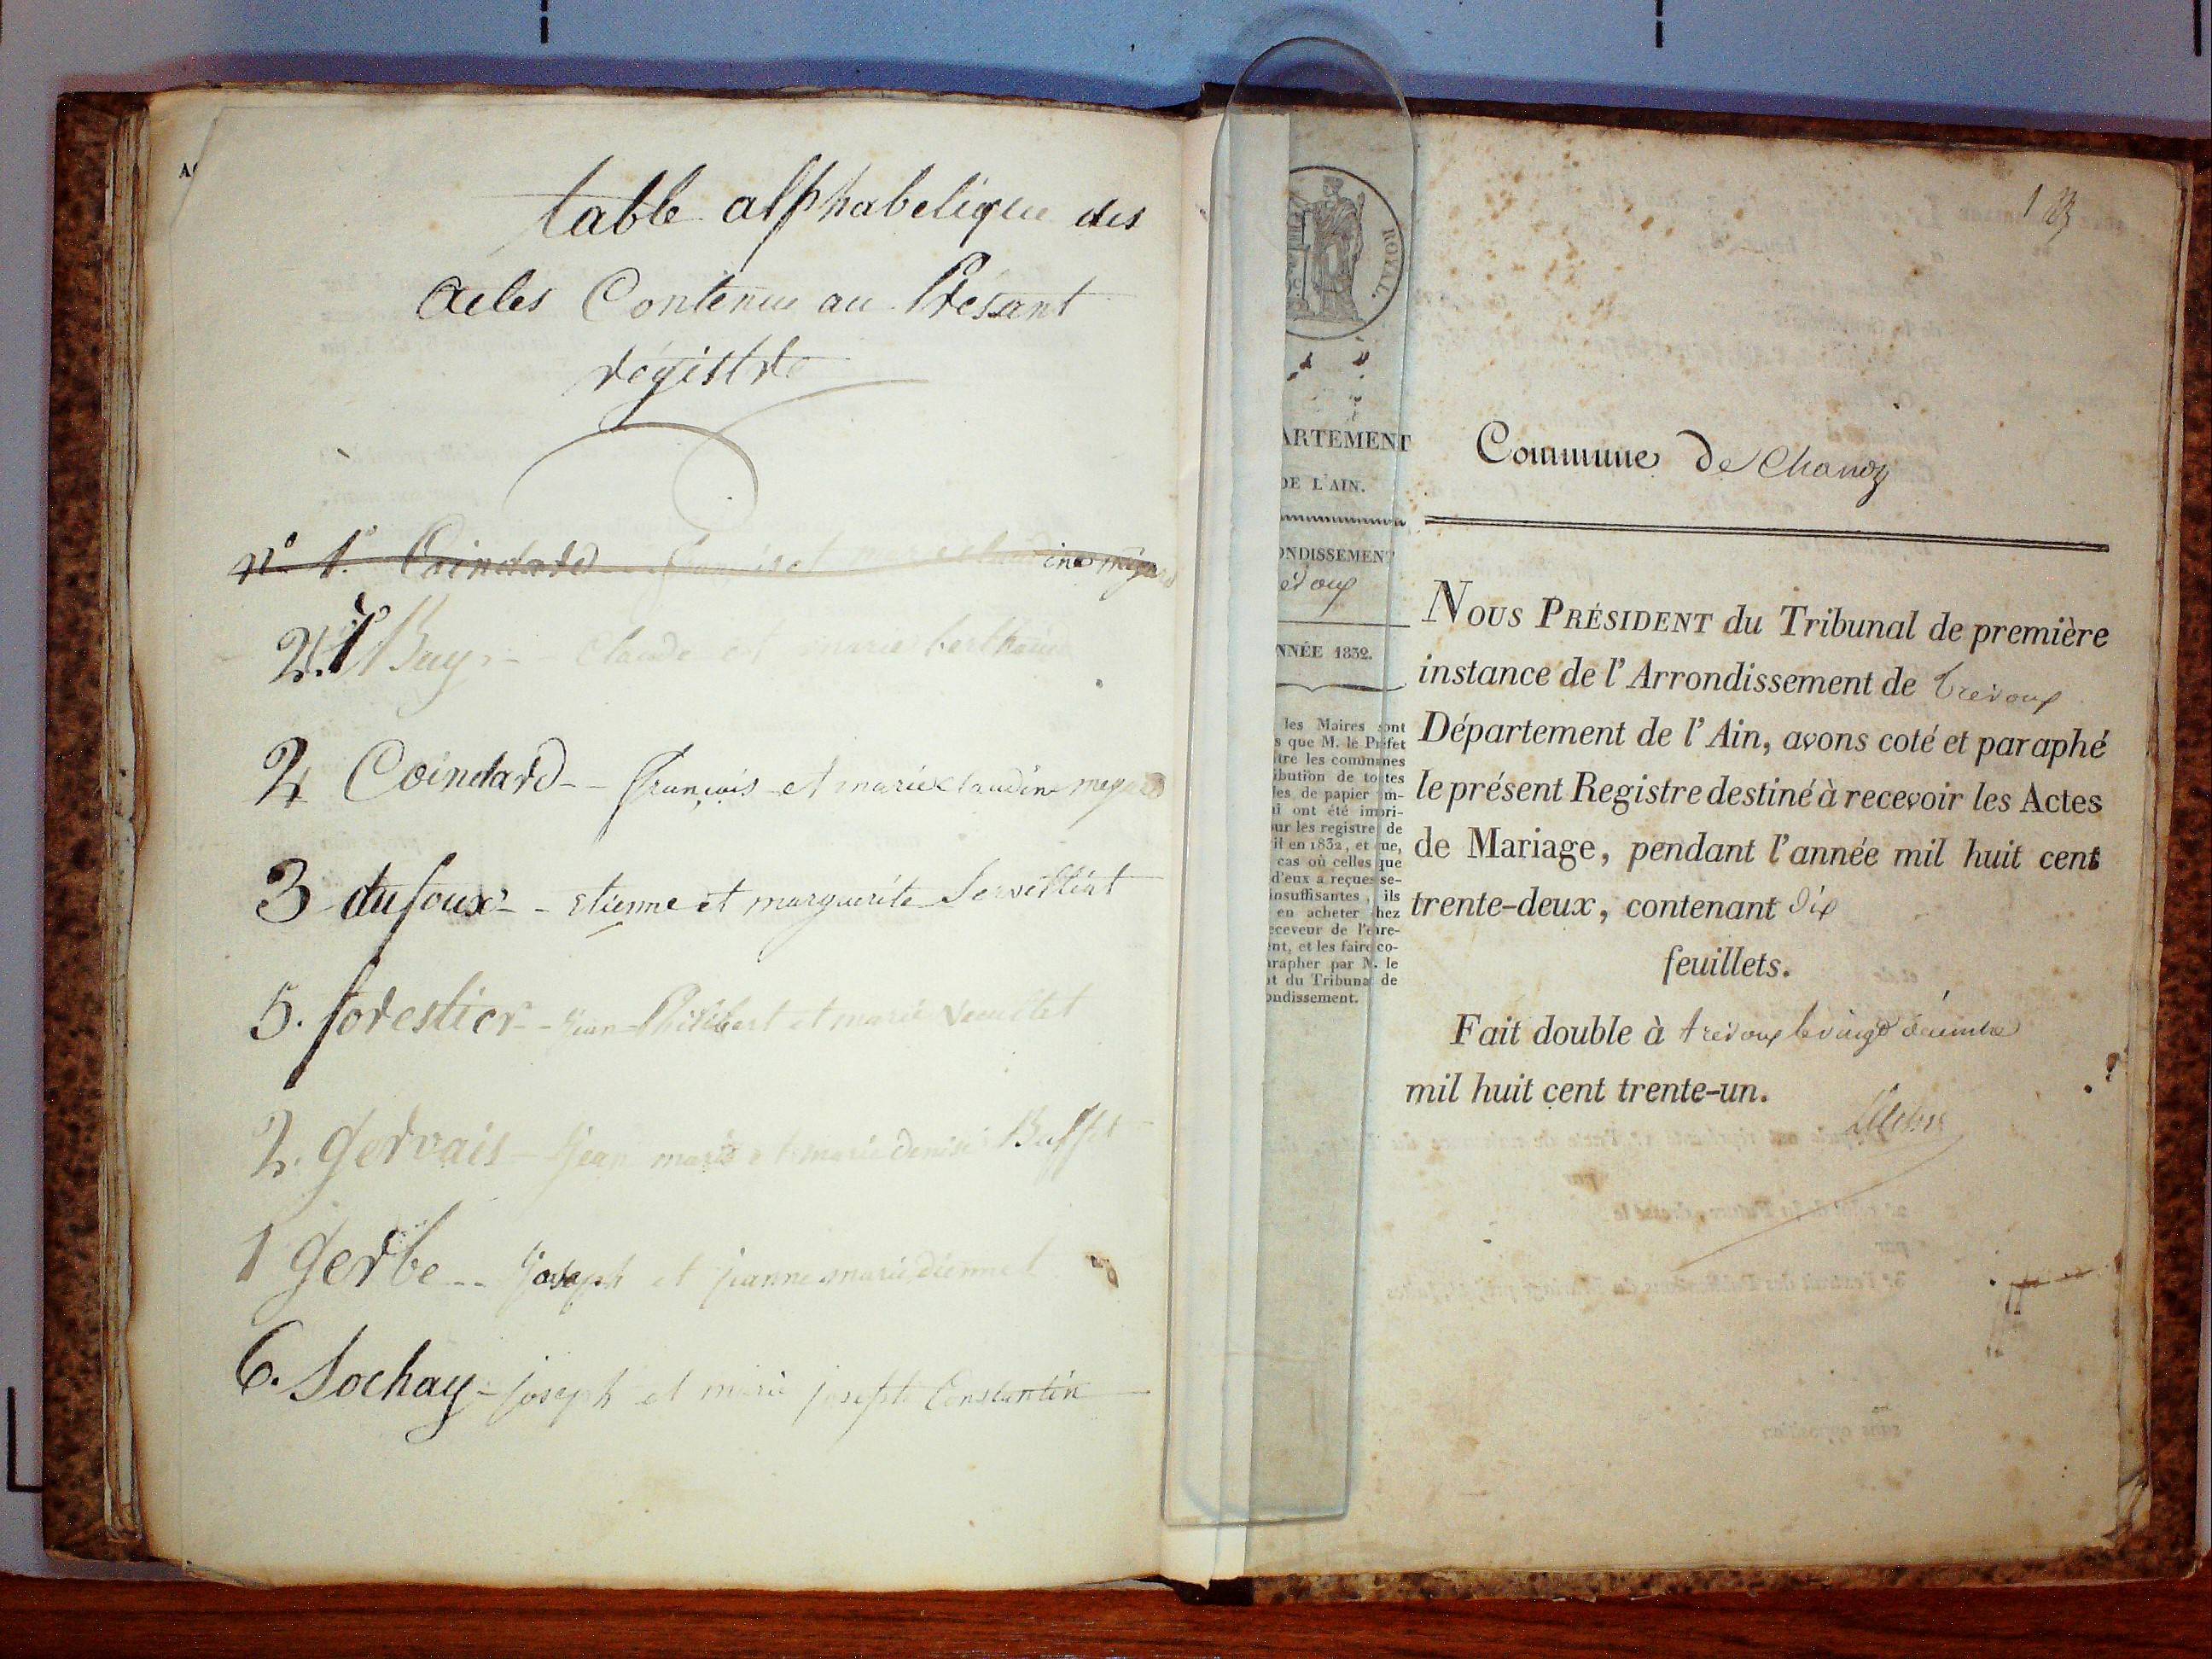 table alphabetique des
actes Contenue au Présant
régistre
n° 1° Coindard
Buy - claude et marie
4 Coindard - - françois et marie claudine megard
3 dufoux - - etienne et marguerite Servillat
5. forestier - - jean Philibert et marie
2. gervais - jean marie et marie denise Buffet
1 gerbe - - joseph et jeanne marie
6. Sochay - joseph et marie josephte Constantin
ROYAL.
ARTEMENT
DE L'AIN.
ONDISSEMENT
évoux
NNÉE 1832.
les Maires sont
s que M. le Préfet
tre les communes
ibution de toutes
les de papier im-
i ont été impri-
ur les registre de
il en 1832, et que,
cas où celles que
d'eux a reçues se-
insuffisantes, ils
en acheter chez
eceveur de l'enre-
ent, et les faire co-
arapher par M. le
t du Tribunal de
ondissement.
Commune de Chanoz
NOUS PRÉSIDENT du Tribunal de première
instance de l'Arrondissement de trevoux
Département de l'Ain, avons coté et paraphé
le présent Registre destiné à recevoir les Actes
de Mariage, pendant l'année mil huit cent
trente-deux, contenant dix
feuillets.
Fait double à trevoux le vingt décembre
mil huit cent trente-un.